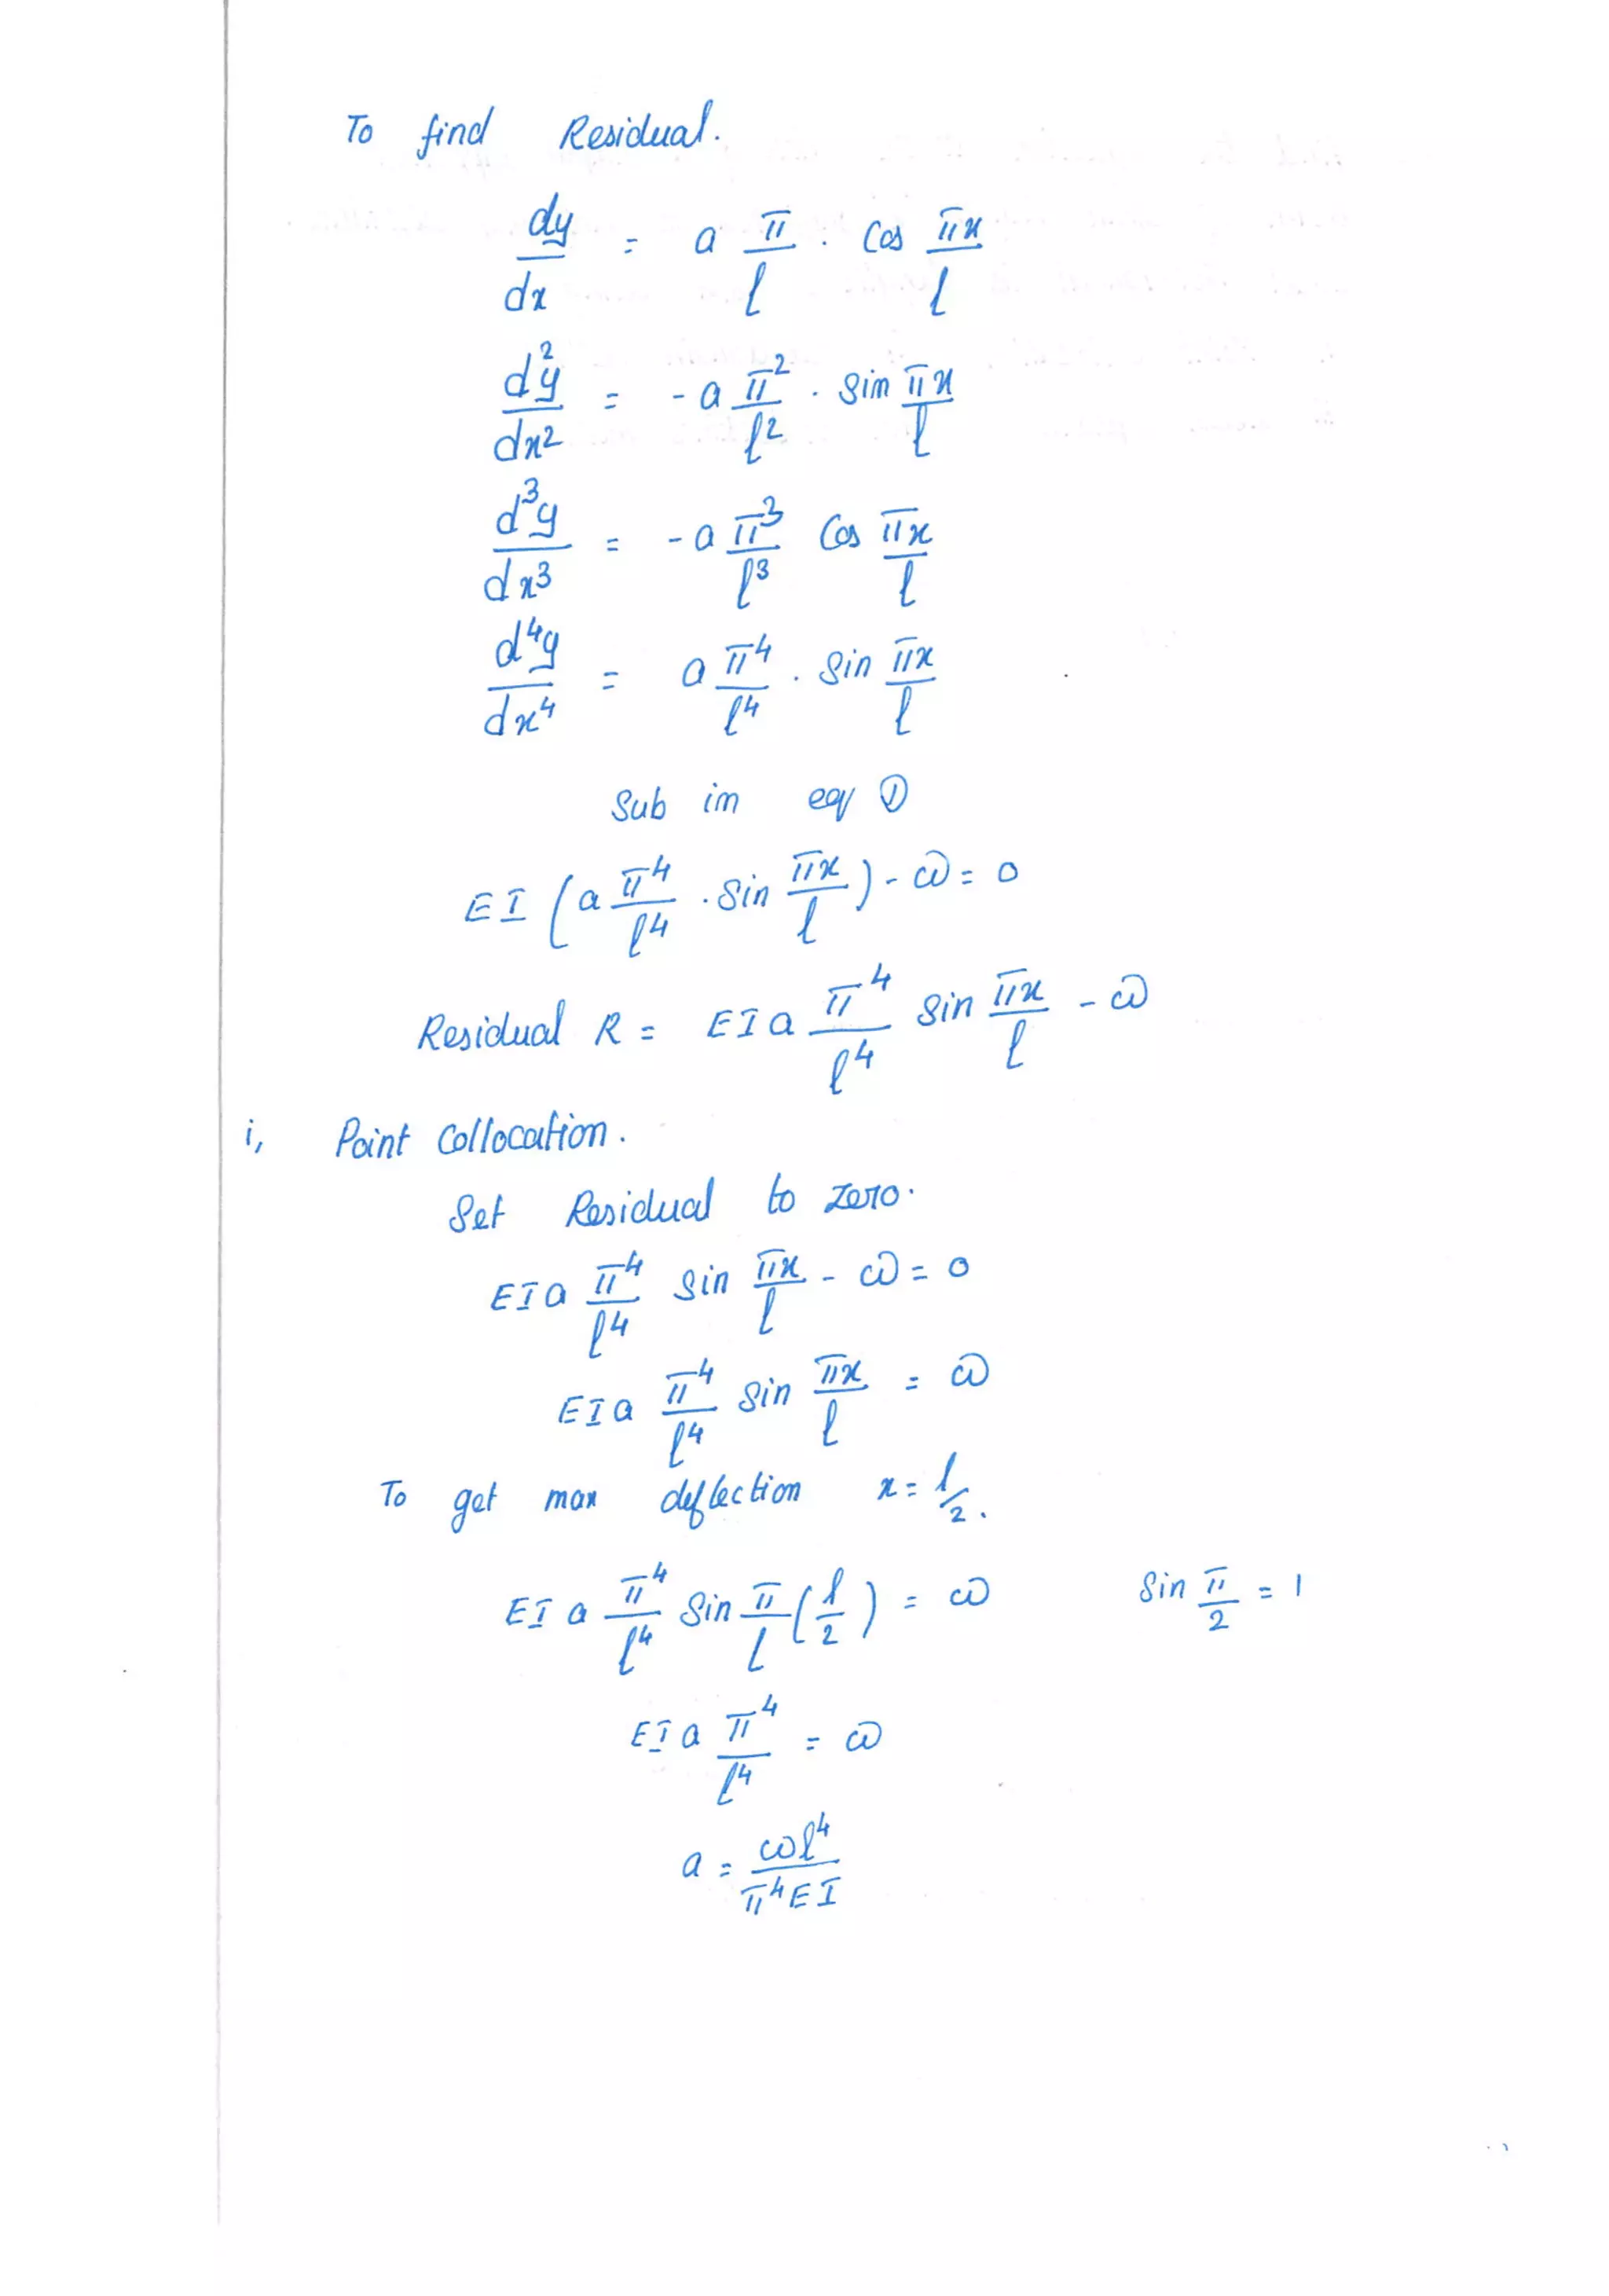 To find Residual.
dy/dx = a π/l . Cos πx/l
d²y/dx² = -a π²/l² . Sin πx/l
d³y/dx³ = -a π³/l³ Cos πx/l
d⁴y/dx⁴ = a π⁴/l⁴ . Sin πx/l
Sub in eq ①
EI (a π⁴/l⁴ . Sin πx/l) - ω = 0
Residual R = EIa π⁴/l⁴ Sin πx/l - ω
i, Point Collocation.
Set Residual to zero.
EIa π⁴/l⁴ Sin πx/l - ω = 0
EIa π⁴/l⁴ Sin πx/l = ω
To get max deflection x = l/2.
EI a π⁴/l⁴ Sin π/l (l/2) = ω Sin π/2 = 1
EIa π⁴/l⁴ = ω
a = ωl⁴/π⁴EI